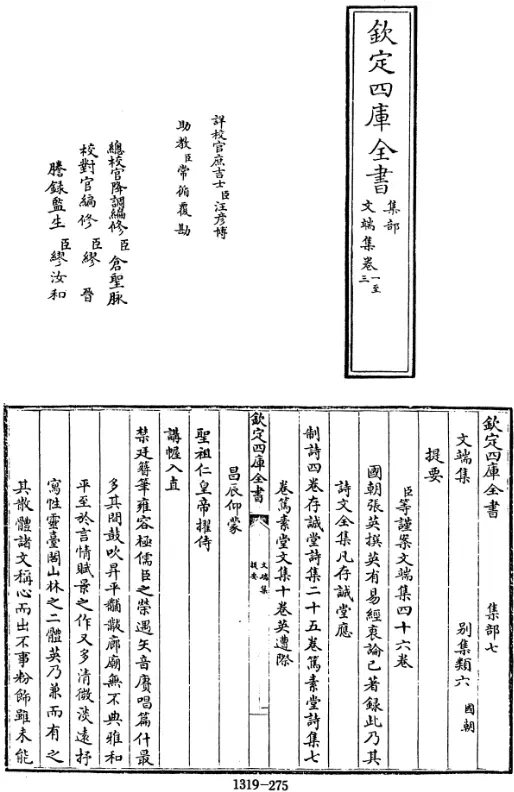 欽定四庫全書
集部
文端集卷一至三
詳校官庶吉士臣汪彥博
助教臣常循覆勘
總校官降調編修臣倉聖脉
校對官編修臣繆晉
謄錄監生臣繆汝和
欽定四庫全書 集部七
文端集 别集類六 國朝
提要
臣等謹案文端集四十六卷
國朝張英撰英有易經衷論已著錄此乃其
詩文全集凡存誠堂應
制詩四卷存誠堂詩集二十五卷篤素堂詩集七
卷篤素堂文集十卷英遭際
欽定四庫全書
文端集
提要
昌辰仰蒙
聖祖仁皇帝擢侍
講幄入直
禁廷簪筆雍容極儒臣之榮遇矢音賡唱篇什最
多其間鼓吹昇平黼黻廊廟無不典雅和
平至於言情賦景之作又多清微淡遠抒
寫性靈臺閣山林之二體英乃兼而有之
其散體諸文稱心而出不事粉飾雖未能
1319-275